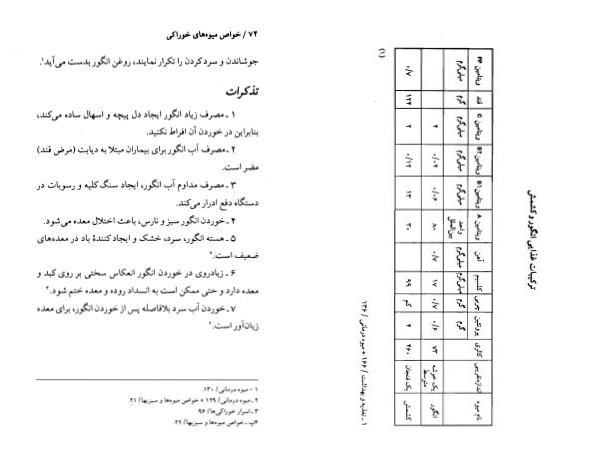 ۷۴ / خواص میوه‌های خوراکی
جوشاندن و سرد کردن را تکرار نمایند، روغن انگور بدست می‌آید¹.
تذکرات
۱ ـ مصرف زیاد انگور ایجاد دل پیچه و اسهال ساده می‌کند،
بنابراین در خوردن آن افراط نکنید.
۲ ـ مصرف آب انگور برای بیماران مبتلا به دیابت (مرض قند)
مضر است.
۳ ـ مصرف مداوم آب انگور، ایجاد سنگ کلیه و رسوبات در
دستگاه دفع ادرار می‌کند.
۴ ـ خوردن انگور سبز و نارس، باعث اختلال معده می‌شود.
۵ ـ هسته انگور، سرد، خشک و ایجاد کنندهٔ باد در معده‌های
ضعیف است.
۶ ـ زیاده‌روی در خوردن انگور انعکاس سختی بر روی کبد و
معده دارد و حتی ممکن است به انسداد روده و معده ختم شود.
۷ ـ خوردن آب سرد بلافاصله پس از خوردن انگور، برای معده
زیان‌آور است.
۱ ـ میوه درمانی / ۱۳۰.
۲ ـ میوه درمانی / ۱۲۹ + خواص میوه‌ها و سبزیها / ۲۱.
۳ ـ اسرار خوراکی‌ها / ۹۶.
۴ ـ خواص میوه‌ها و سبزیها / ۲۲.
ترکیبات غذایی انگور و کشمش
(۱)
نام میوه اندازه تقریبی کالری پروتئین گرم چربی گرم کلسیم میلی‌گرم آهن میلی‌گرم ویتامین A واحد بین‌المللی ویتامین B۱ میلی‌گرم ویتامین B۲ میلی‌گرم ویتامین C میلی‌گرم قند گرم ویتامین PP میلی‌گرم
انگور یک خوشه متوسط ۷۳ ۰/۶ ۰/۷ ۱۷ ۰/۷ ۸۰ ۰/۰۶ ۰/۰۴ ۴
کشمش یک فنجان ۴۶۰ ۴ کم ۹۹ ۳۰ ۱۳ ۰/۱۲ ۲ ۱۲۴ ۰/۷
۱ ـ تغذیه و بهداشت / ۱۶۶ + میوه درمانی / ۱۳۶